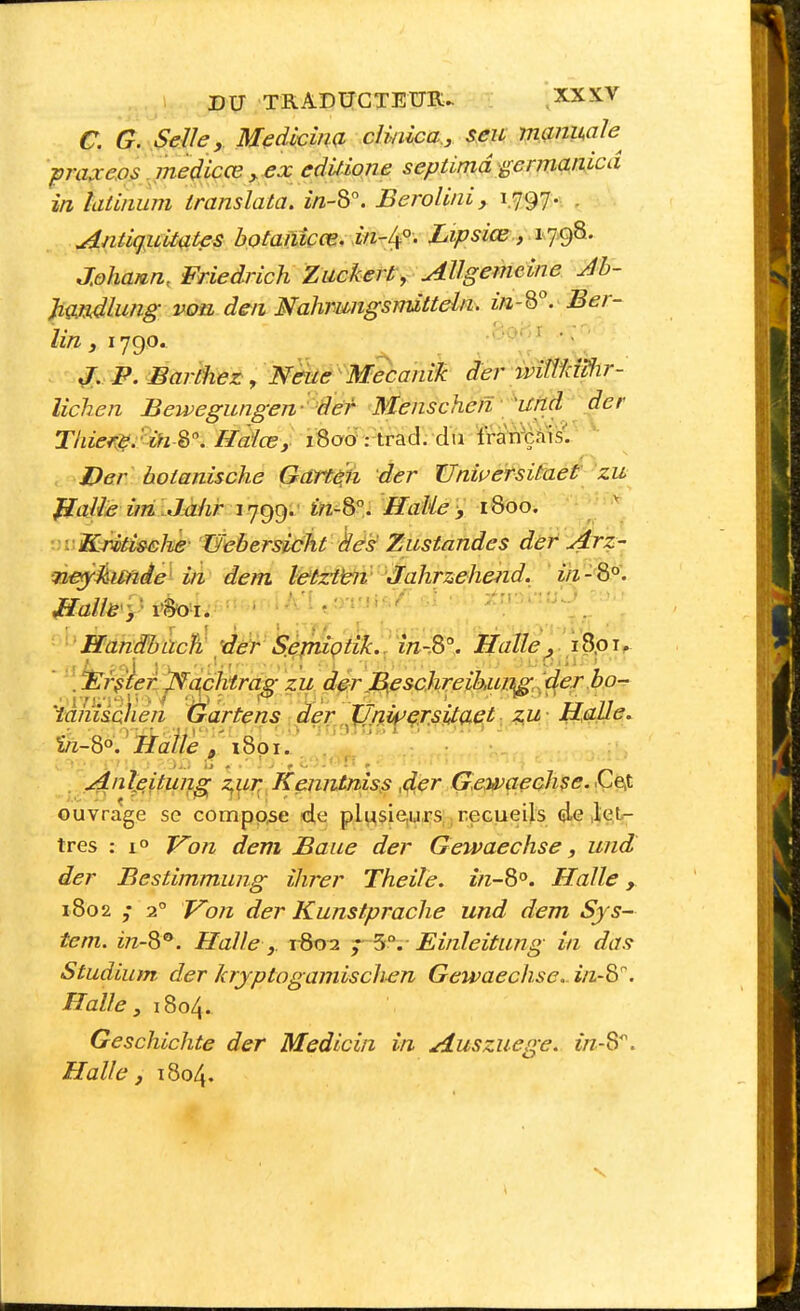 DU TRADUCTEUR. XXXV
C. G. Selle, Medicina clinica, seu manuale
praxeos medicæ, ex editione septimâ germanicâ
in latinum translata. in-8°. Berolini, 1797.
Antiquitates botanicæ. in-4°. Lipsiæ, 1798.
Johann Friedrich Zuckert, Allgemeine Ab-
handlung von den Nahrungsmitteln. in-8°. Ber-
lin, 1790.
J. P. Barthez, Neue Mecanik der willkühr-
lichen Bewegungen der Menschen und der
Thiere. in-8°. Halæ, 1800 : trad. du français.
Der botanische Garten der Universitaet zu
Halle im Jahr 1799. in-8°. Halle, 1800.
Kritische Uebersicht des Zustandes der Arz-
neykunde in dem letzten Jahrzehend. in-8°.
Halle, 1801.
Handbuch der Semiotik. in-8°. Halle, 1801.
Erster Nachtrag zu der Beschreibung der bo-
tanischen Gartens der Universitaet zu Halle.
in-8°. Halle, 1801.
Anleitung zur Kenntniss der Gewaechse. Cet
ouvrage se compose de plusieurs recueils de let-
tres : 1° Von dem Baue der Gewaechse, und
der Bestimmung ihrer Theile. in-8°. Halle,
1802 ; 2° Von der Kunstprache und dem Sys-
tem. in-8°. Halle, 1802 ; 3°. Einleitung in das
Studium der kryptogamischen Gewaechse. in-8°.
Halle, 1804.
Geschichte der Medicin in Auszuege. in-8°.
Halle, 1804.